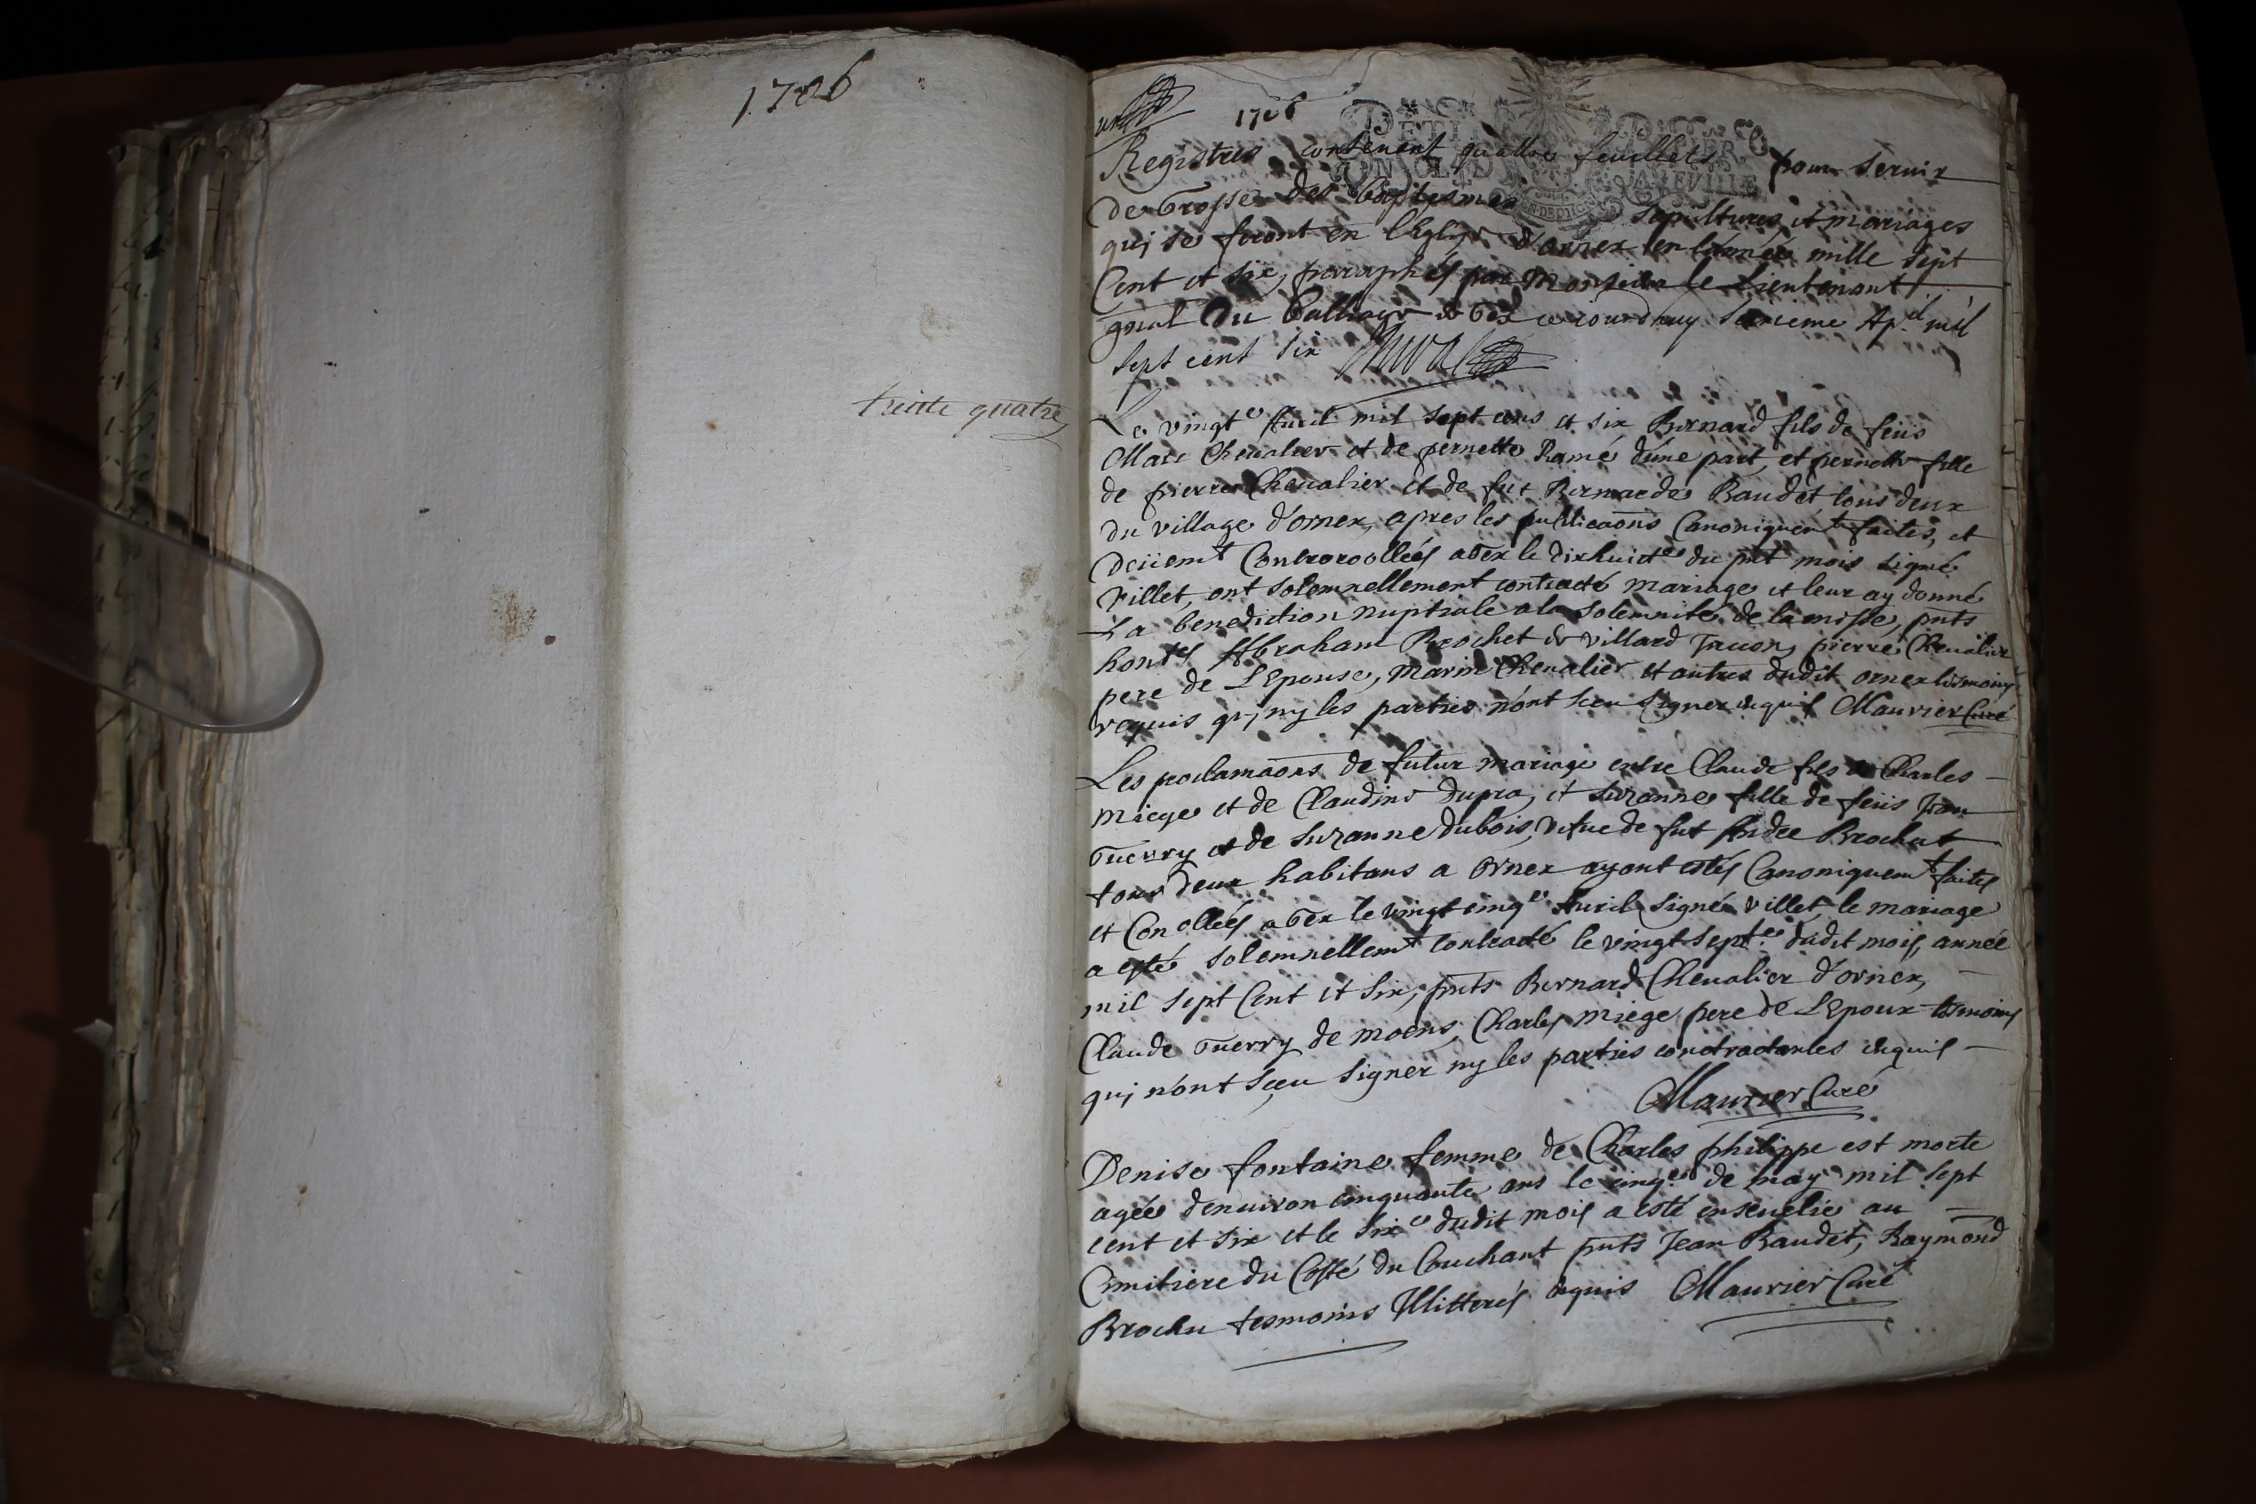 1706
trente quatre
un
1706
PETIT PAPIER
Registres contenant quattre feuillets pour servir
de Grosse des Baptesmes sepultures, et mariages
qui se feront en l'Eglise d'ornex en l'année mille sept
Cent et six, paraphés par Monsieur le Lieutenant
gnal Du Balliage de Gex ce iourdhuy seizieme Apl mil
sept cent six
Le vingte Auril mil sept cens et six Bernard fils de feüs
Marc Cheualier et de pernette Ramé d'une part, et pernette fille
de pierre Cheualier et de fut Bernarde Baudet, tous deux
du village d'ornex, apres les publicaons Canoniquemt faites, et
Deüemt Controrollées a Gex le dixhuicte du pnt mois signé
Villet, ont solemnellement contracté mariage et leur ay donné
La benediction nuptiale a la solemnité de la misse, pnts
hontes Abraham Brochet de Villard Taccon, pierre Cheualier
pere de L'Epouse, Marin Cheualier et autres dudit ornex tesmoins
requis qui ny les parties n'ont sceu signer enquis Maurier Curé
Les proclamaons de futur mariage entre Claude fils de Charles
Miege et de Claudine Dupra, et Suzanne fille de feüs Jean
Guerry et de Suzanne Dubois, vefue de fut Andre Brochut
tous deux habitans a Ornex ayant estés Canoniquemt faites
et Conollées a Gex le vingt cinqe Auril signé Villet, le mariage
a esté solemnellemt Contracté le vingt septe dudit mois, année
mil sept Cent et six, pnts Bernard Cheualier d'ornex,
Claude Guerry de moens, Charles Miege pere de L'Epoux tesmoins
qui n'ont sceu signer ny les parties contractantes enquis
Maurier Curé
Denise fontaine femme de Charles philippe est morte
agée denuiron cinquante ans le cinqe de may mil sept
cent et six et le sixe dudit mois a esté enseuelie au
Cimitiere du Costé du Couchant pnts Jean Baudet, Raymond
Brochu tesmoins Illitterés requis Maurier Curé